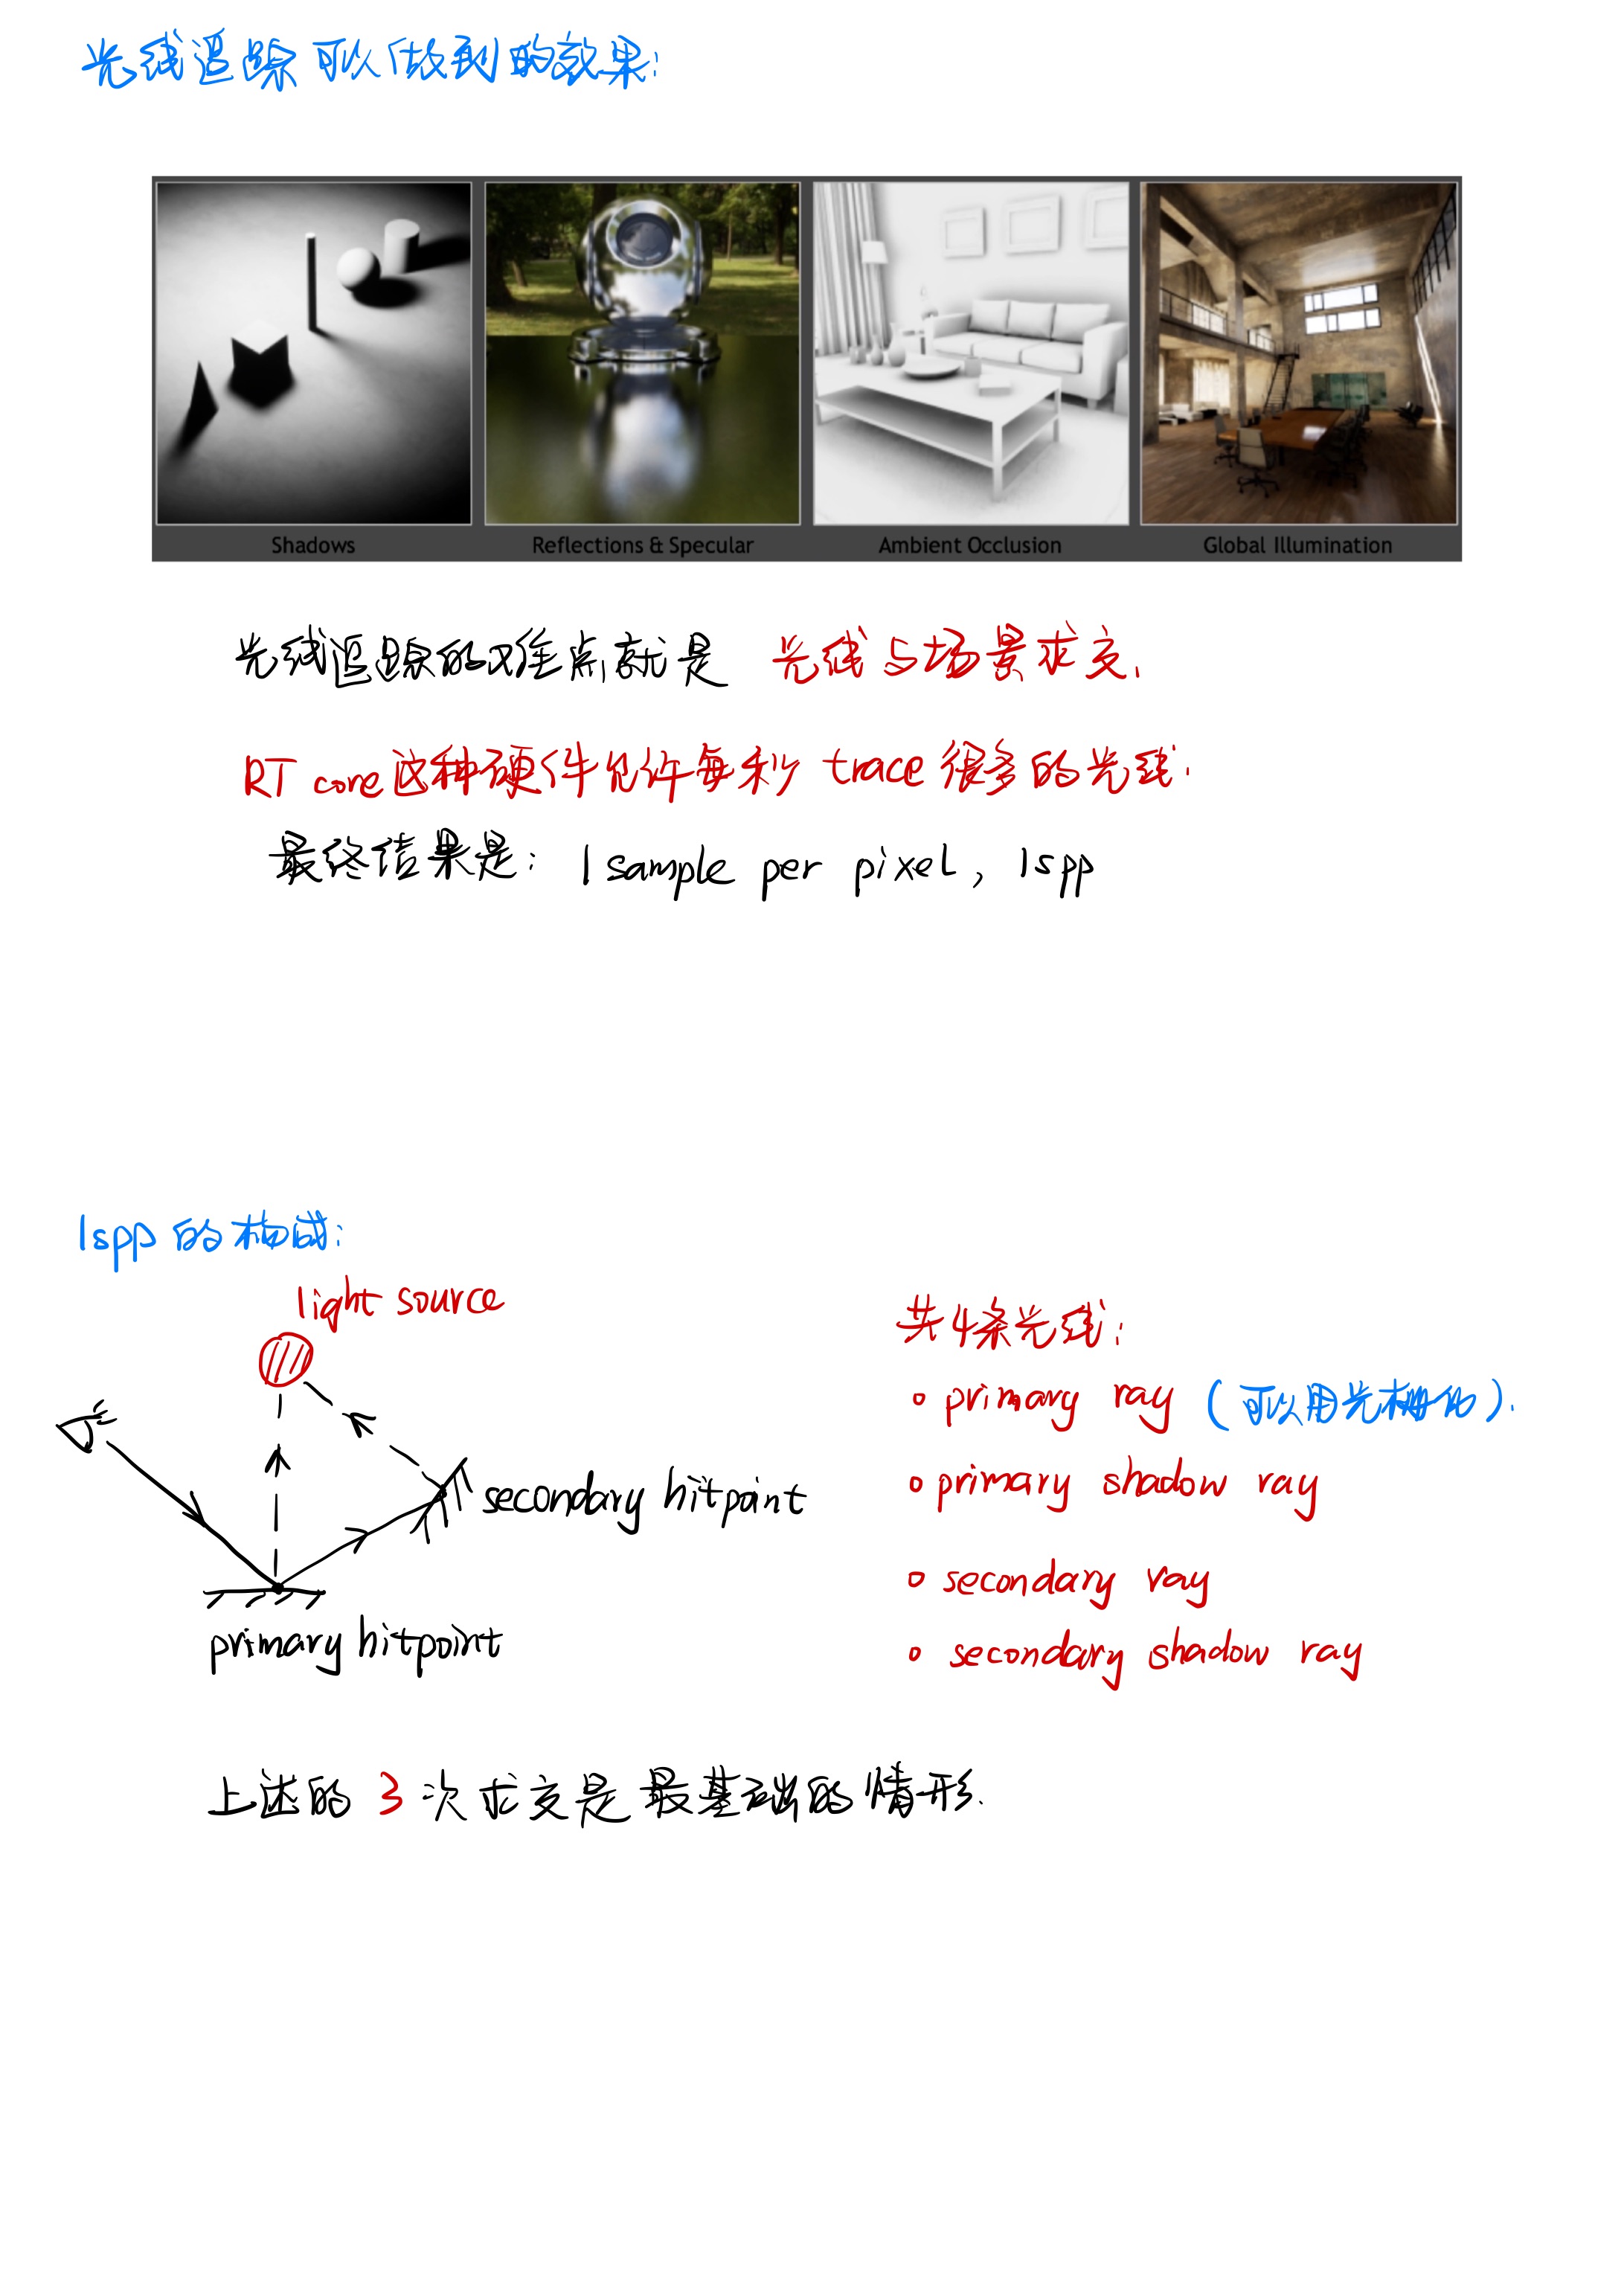 光线追踪可以做到的效果:
Shadows
Reflections & Specular
Ambient Occlusion
Global Illumination
光线追踪的难点就是 光线与场景求交.
RT core这种硬件允许每秒 trace 很多的光线.
最终结果是: 1 sample per pixel, 1spp
1spp 的构成:
light source
secondary hitpoint
primary hitpoint
共4条光线:
primary ray (可以用光栅化).
primary shadow ray
secondary ray
secondary shadow ray
上述的 3 次求交是最基础的情形.